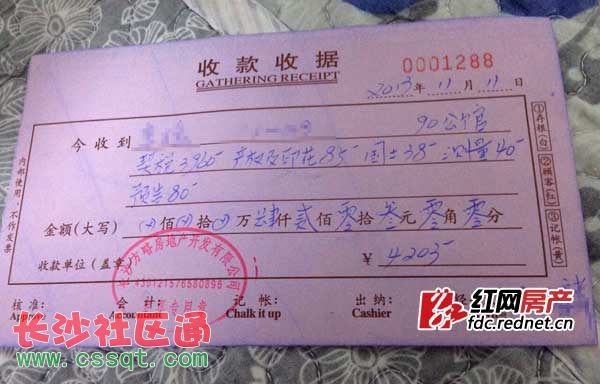 收款收据
GATHERING RECEIPT
0001288
2013年11月11日
今收到 90公官
契税3960 产权及印花85 国土38 测量40
预告80
金额(大写) 佰 拾 万 肆仟贰佰零拾叁元零角零分
收款单位(盖章) ¥ 4203
长沙方略房地产开发有限公司
430121576580898
财务专用章
核准: 会计: 记帐: 出纳:
Approve Accountant Chalk it up Cashier
内部使用,不作发票
①存根(白) ②顾客(红) ③记帐(黄)
长沙社区通
www.cssqt.com
红网房产
fdc.rednet.cn